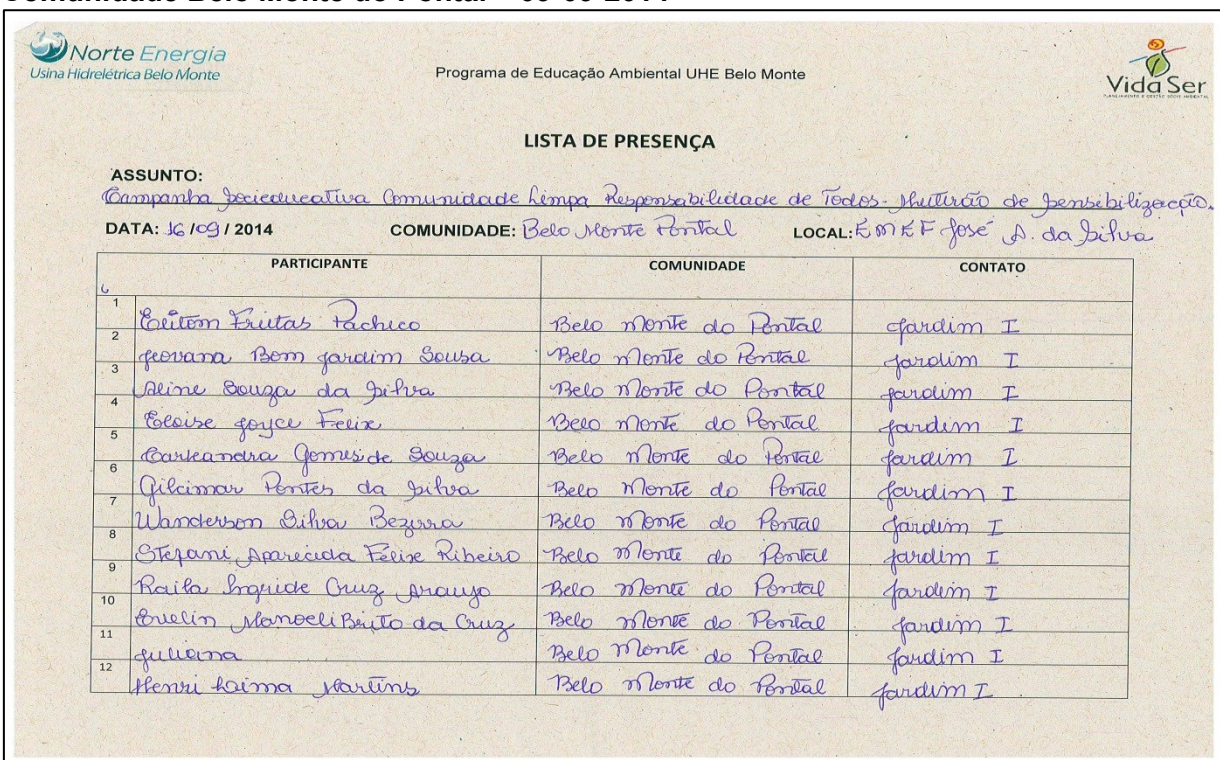 Norte Energia
Usina Hidrelétrica Belo Monte
Programa de Educação Ambiental UHE Belo Monte
Vida Ser
LISTA DE PRESENÇA
ASSUNTO:
Campanha Socieducativa Comunidade Limpa Responsabilidade de Todos - Mutirão de Sensibilização.
DATA: 16/09/2014 COMUNIDADE: Belo Monte Pontal LOCAL: EMEF José A. da Silva
PARTICIPANTE COMUNIDADE CONTATO
1 Freitas Pacheco Belo Monte do Pontal Jardim I
2 Geovana Bom Jardim Sousa Belo Monte do Pontal Jardim I
3 Aline Souza da Silva Belo Monte do Pontal Jardim I
4 Eloise Joyce Felix Belo Monte do Pontal Jardim I
5 Carleandra Gomes de Souza Belo Monte do Pontal Jardim I
6 Gilcimar Pontes da Silva Belo Monte do Pontal Jardim I
7 Wanderson Silva Bezerra Belo Monte do Pontal Jardim I
8 Stefani Aparecida Felix Ribeiro Belo Monte do Pontal Jardim I
9 Raila Cruz Araujo Belo Monte do Pontal Jardim I
10 Evelin Manoeli Brito da Cruz Belo Monte do Pontal Jardim I
11 Juliana Belo Monte do Pontal Jardim I
12 Henri Laima Martins Belo Monte do Pontal Jardim I